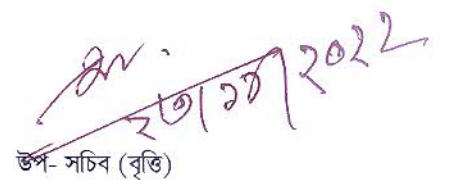 ২৩/১১/২০২২
উপ- সচিব (বৃত্তি)